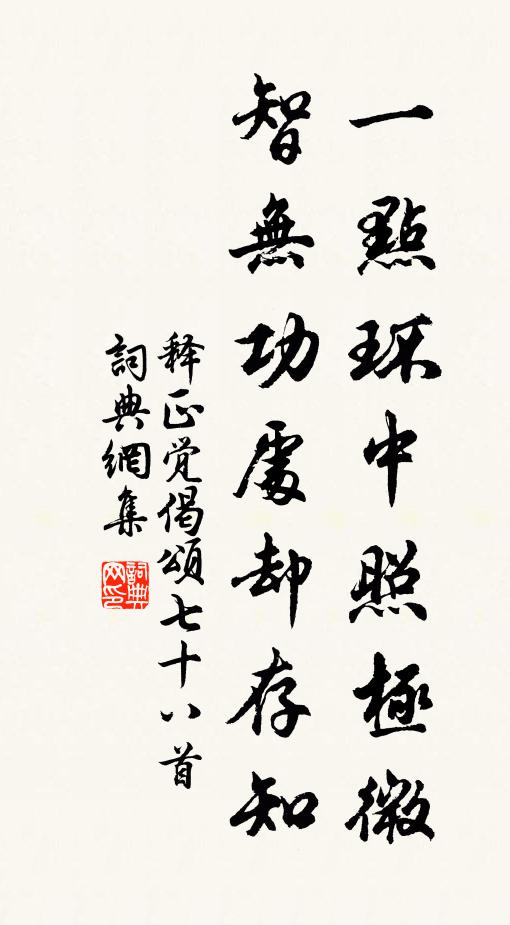 一點环中照極微
智無功處却存知
释正觉偈颂七十八首
詞典網集
詞典网印